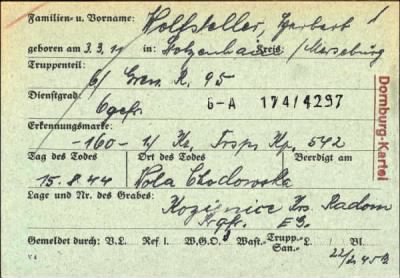 Familien- u. Vorname: Wolfsteller, Herbert
geboren am 3.3.11 in: Kreis: /Merseburg
Truppenteil:
6/ Gren. R. 95
Dienstgrad:
Ogefr. 6-A 174/4297
Erkennungsmarke:
-160- Kp. 542
Tag des Todes Ort des Todes Beerdigt am
15.8.44 Wola Chodowska
Lage und Nr. des Grabes:
Kozienice Krs. Radom
E 3.
Gemeldet durch: V.L. Ref I. W.G.O. Wast.- Trupp.- San.- L. / Bl.
V 4
Dornburg-Kartei